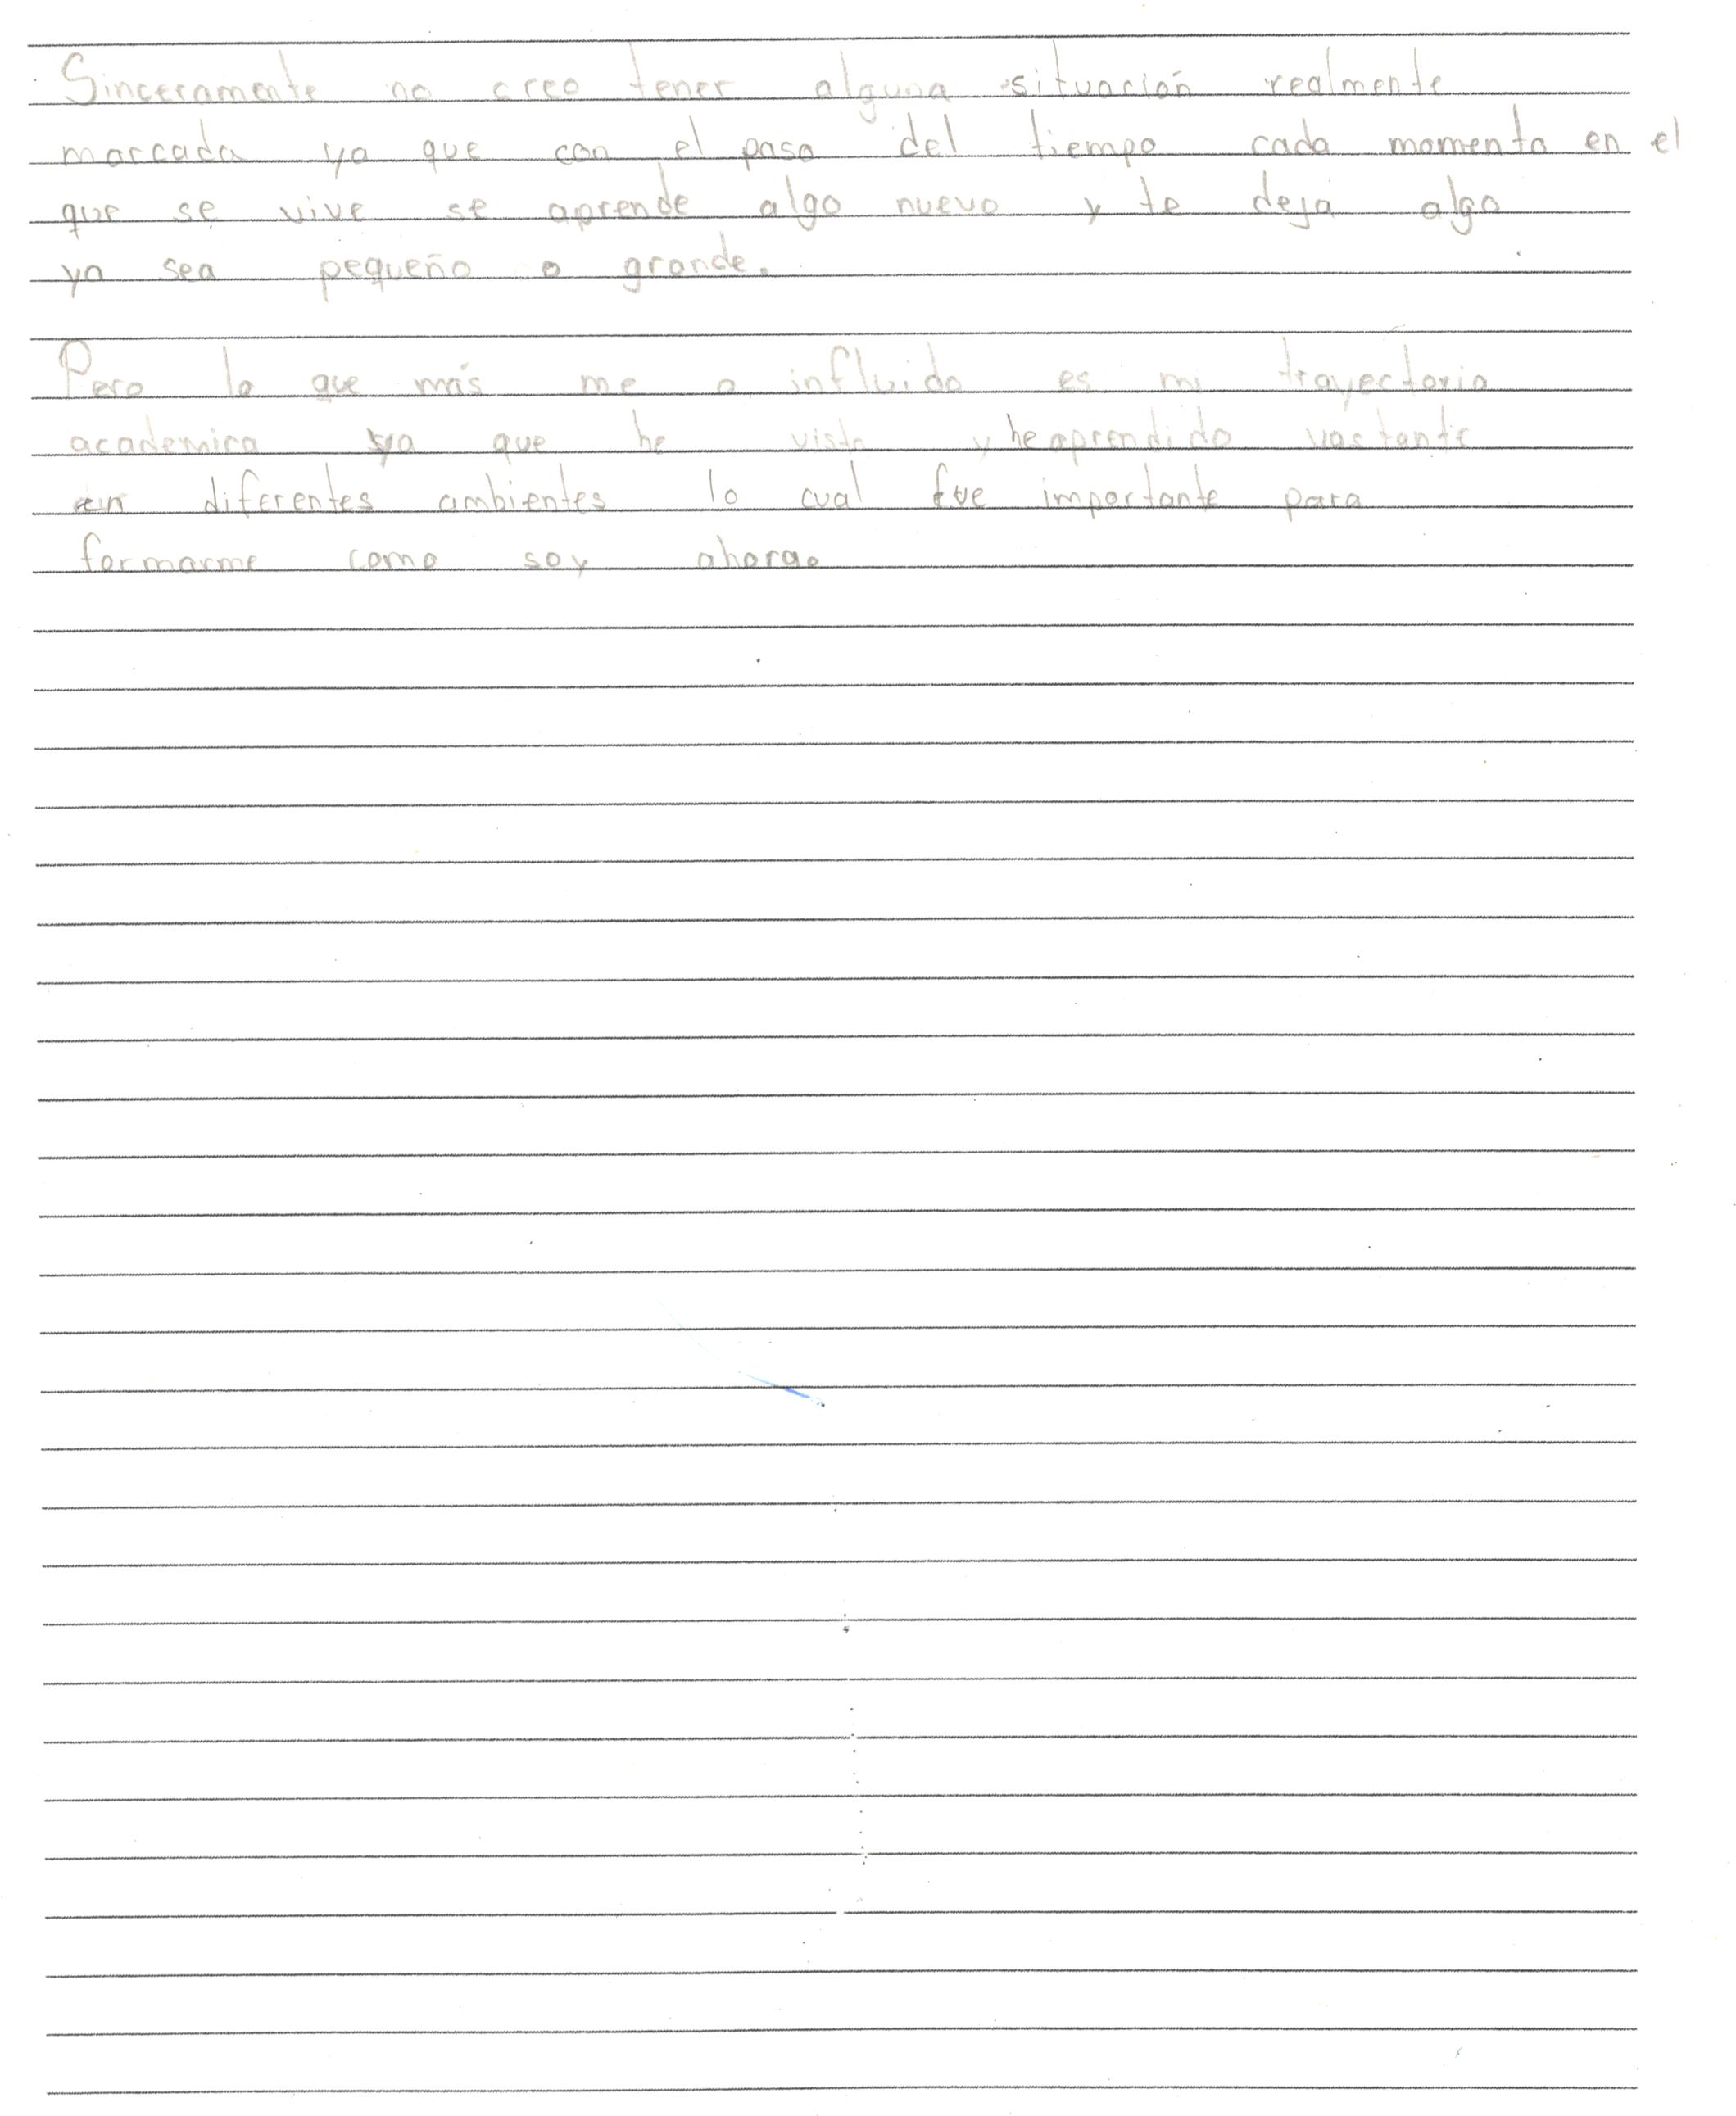 Sinceramente no creo tener alguna situación realmente
marcada ya que con el paso del tiempo cada momento en el
que se vive se aprende algo nuevo y te deja algo
ya sea pequeño o grande.
Pero lo que más me a influido es mi trayectoria
academica ya que he visto y he aprendido vastante
en diferentes ambientes lo cual fue importante para
formarme como soy ahora.